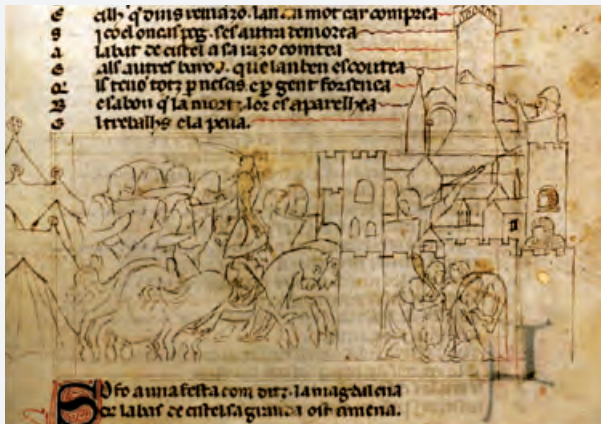 E cilh q̄ dins remazo. lan mot car comprea
S i co pog. ses autra demorea
A labat de cistel a sa razo comtea
E als autres baros. que lan ben escoutea
totz p nescis. e p gent forsenea
E sabon q̄ la mort. lor es aparelhea
E l trebalhs e la pena.
So fo a una festa com ditz. la magdalena
labas de cistel sa granda ost amena.